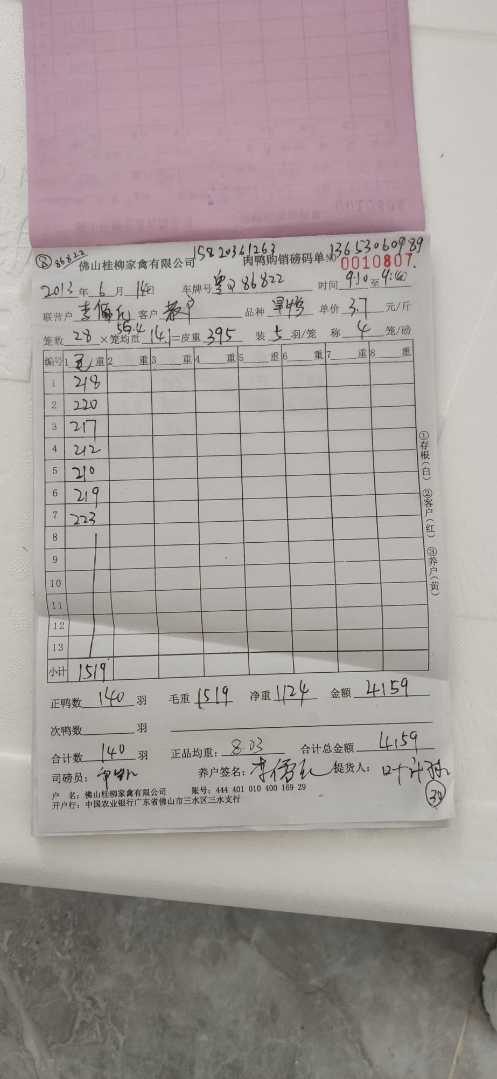 ⑧ 86822 15820361263 13653060989
佛山桂柳家禽有限公司 肉鸭购销磅码单 № 0010807
2013 年 6 月 14 日 车牌号 粤Q 86822 时间 9:10 至 9:40
联营户 客户 散户 品种 单价 3.7 元/斤
笼数 28 × 笼均重 14.1 = 皮重 395 装 5 羽/笼 称 4 笼/磅
55.4
编号 1 毛 重 2 重 3 重 4 重 5 重 6 重 7 重 8 重
1 218
2 220
3 217
4 212
5 210
6 219
7 223
8
9
10
11
12
13
小计 1519
①存根(白) ②客户(红) ③养户(黄)
正鸭数 140 羽 毛重 1519 净重 1124 金额 4159
次鸭数 羽
合计数 140 羽 正品均重: 8.03 合计总金额 4159
司磅员: 养户签名: 提货人:
户 名: 佛山桂柳家禽有限公司 账号: 444 401 010 400 169 29
开户行: 中国农业银行广东省佛山市三水区三水支行